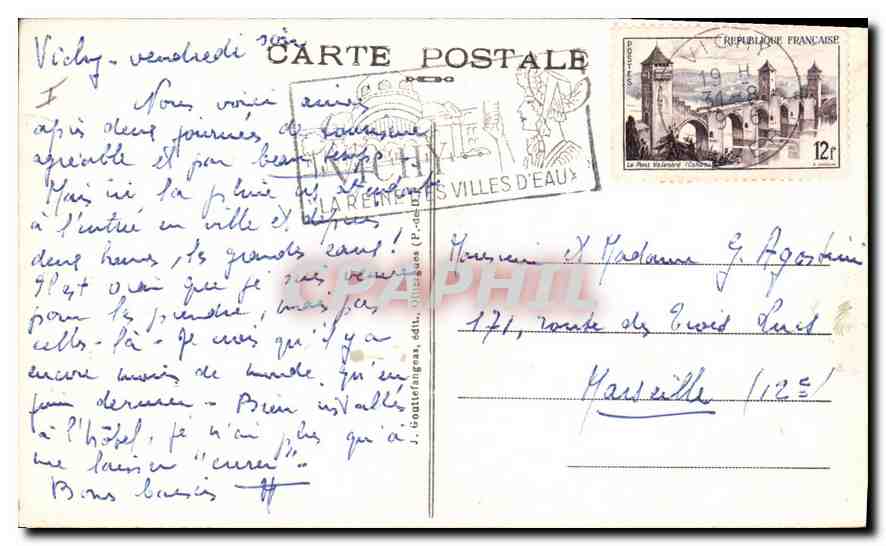 Vichy - vendredi soir
CARTE POSTALE
I
Nous voici arrivés
après deux journées de tourisme
agréable et par beau temps.
Mais ici, la pluie ns attendait
à l'entrée en ville et depuis
deux heures, les grandes eaux!
Il est vrai que je suis venue
pour les prendre, mais pas
celles-là - Je crois qu'il y a
encore moins de monde qu'en
juin dernier - Bien installés
à l'hôtel, je n'ai plus qu'à
me laisser "curer"..
Bons baisers
VICHY
"LA REINE DES VILLES D'EAUX"
POSTES
REPUBLIQUE FRANÇAISE
VICHY
19 H
31-8
Le Pont Valentré (Cahors)
12f
J. Gouttefangeas, édit., Olliergues (P.-de-D.)
Monsieur et Madame G. Agostini
171, route des Trois Lucs
Marseille (12e)
CPAPHIL